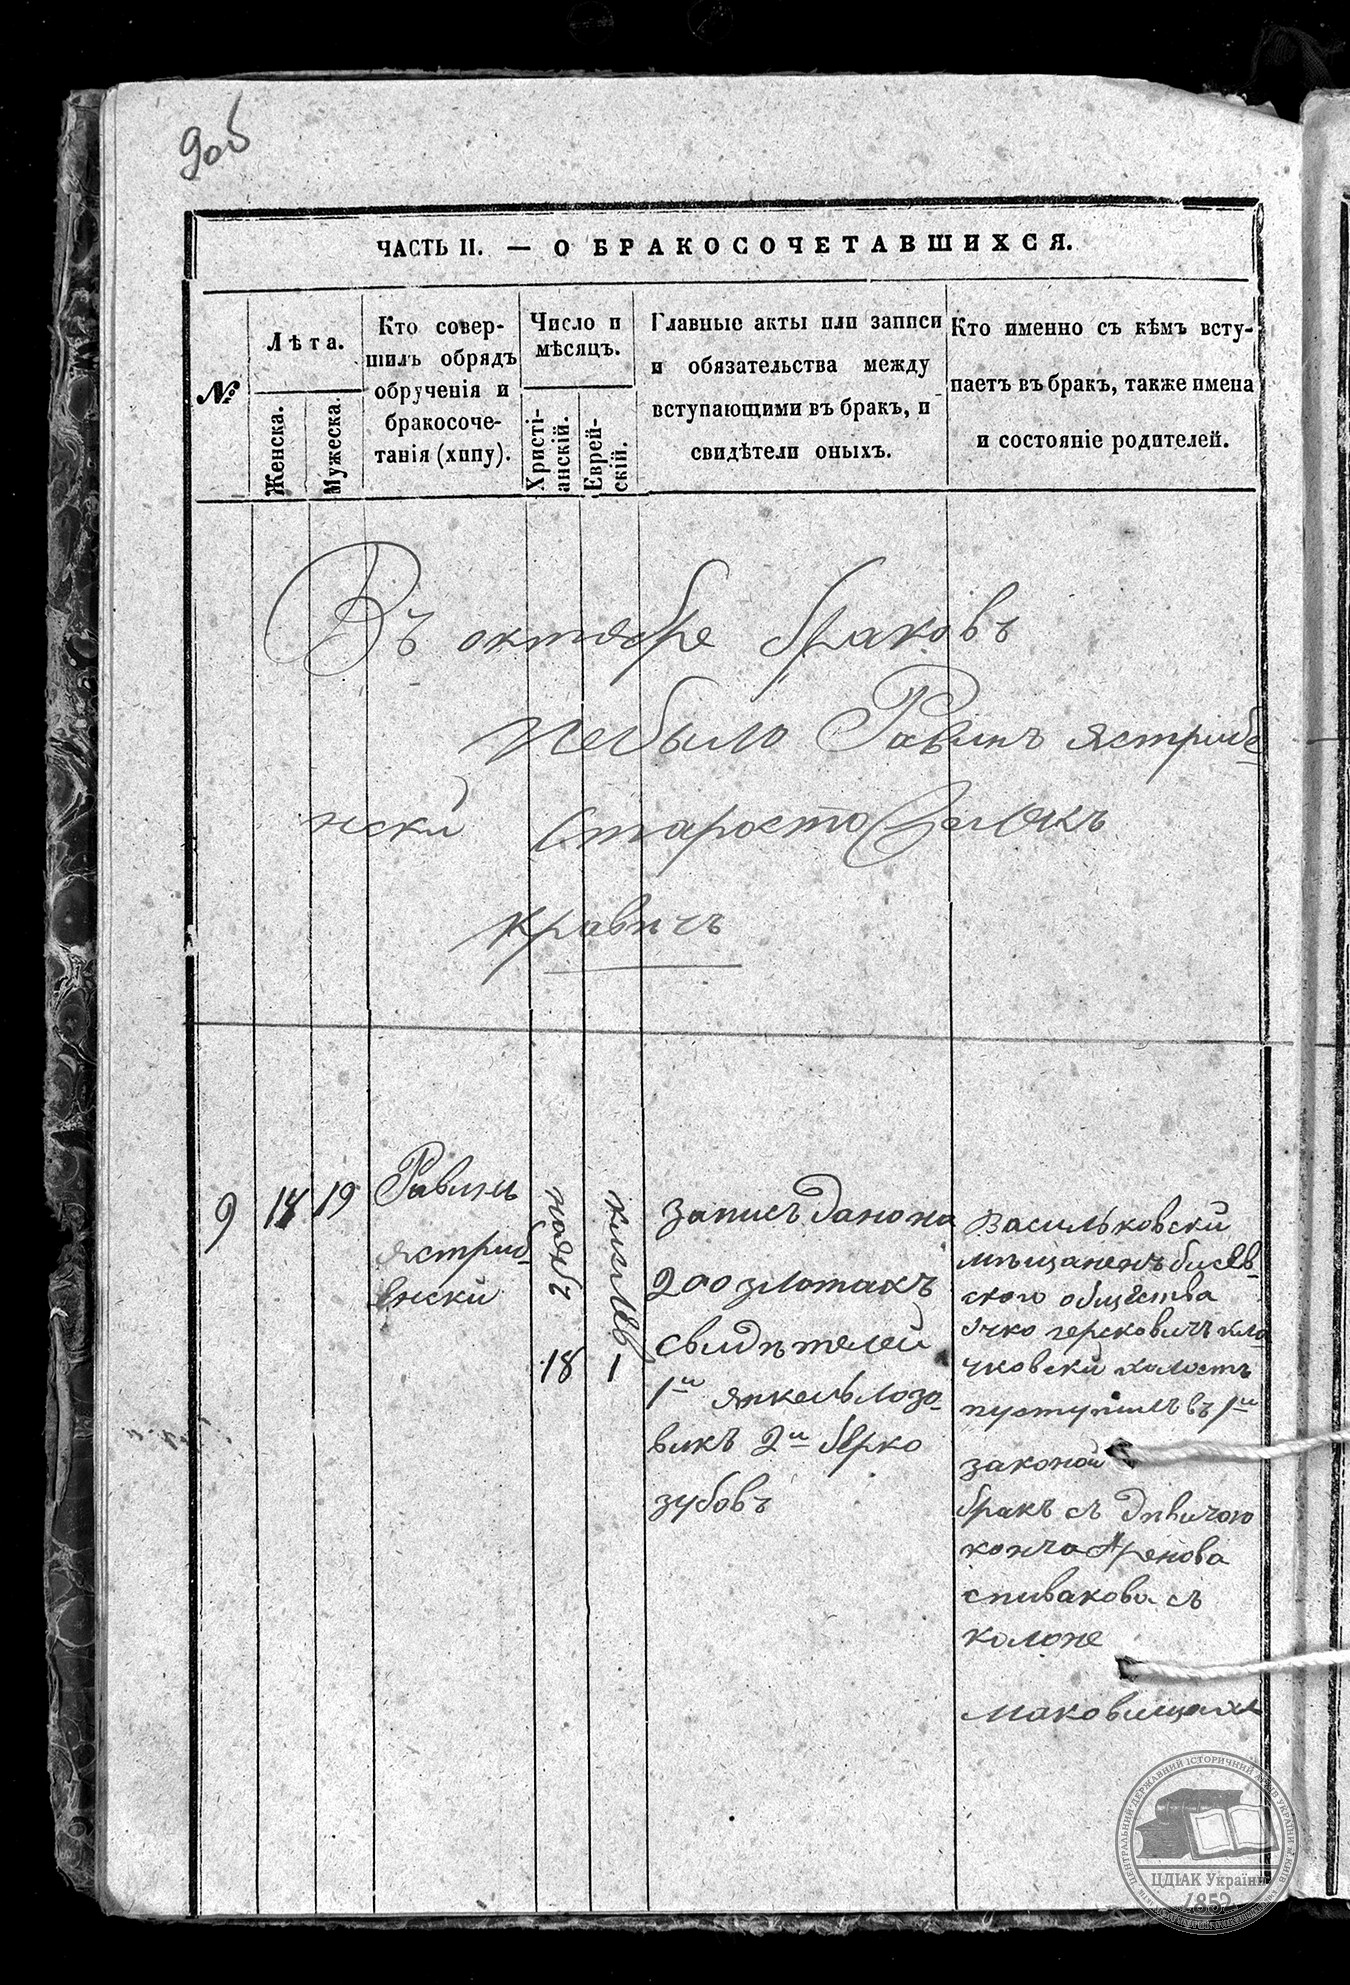 90б
ЧАСТЬ II. — О БРАКОСОЧЕТАВШИХСЯ.
№
Лѣта.
Женска.
Мужеска.
Кто совер-
шилъ обрядъ
обрученія и
бракосоче-
танія (хипу).
Число и
мѣсяцъ.
Христі-
анскій.
Еврей-
скій.
Главные акты или записи
и обязательства между
вступающими въ бракъ, и
свидѣтели оныхъ.
Кто именно съ кѣмъ всту-
паетъ въ бракъ, также имена
и состояніе родителей.
Въ октябре браковъ
небыло Равинъ Ястрибе-
нски Старосто
Кравичъ
9
18
19
Равинъ
Ястриб-
енски
ноябр
18
кислев
1
Записъ дано на
200 злотахъ
свидѣтелей
1й Янкель Лозо-
викъ 2й Берко
Зубовъ
Васильковски
мѣщаненъ
ского общества
Ичко Герсковичъ Кло
чковски холостъ
пуступилъ въ 1й
законой
бракъ съ дѣвичою
Аренова
Спивакова съ
калоне
Маковищахъ
ЦЕНТРАЛЬНИЙ ДЕРЖАВНИЙ ІСТОРИЧНИЙ АРХІВ УКРАЇНИ М. КИЇВ
ЦДІАК України
1852